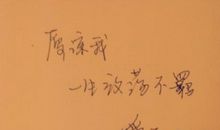 原谅我
一生放荡不羁